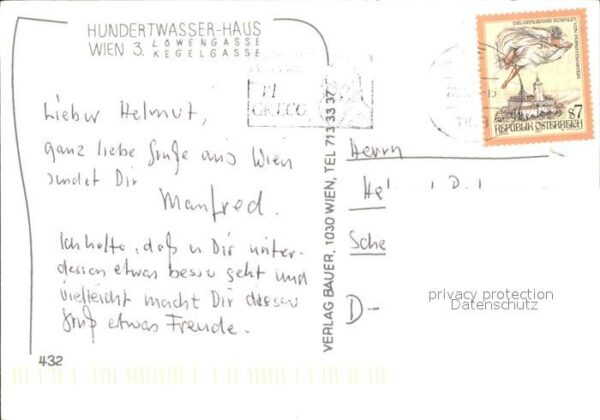 HUNDERTWASSER-HAUS
WIEN 3. LÖWENGASSE
KEGELGASSE
Lieber Helmut,
ganz liebe Grüße aus Wien
sendet Dir
Manfred.
Ich hoffe, daß es Dir unter-
dessen etwas besser geht und
vielleicht macht Dir dieser
Gruß etwas Freude.
432
VERLAG BAUER, 1030 WIEN, TEL 713 33 37
EL
GRECO
REPUBLIK ÖSTERREICH
S7
Herrn
He
Sche
D-
privacy protection
Datenschutz